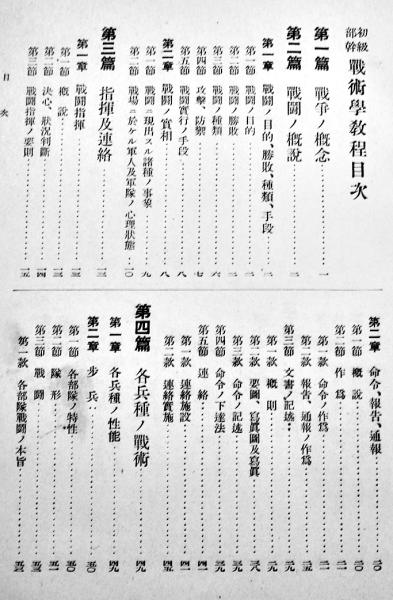 初級
幹部
戰術學教程目次
第一篇 戰爭ノ概念
第二篇 戰鬪ノ概說
第一章 戰鬪ノ目的、勝敗、種類、手段
第一節 戰鬪ノ目的
第二節 戰鬪ノ勝敗
第三節 戰鬪ノ種類
第四節 攻擊、防禦
第五節 戰鬪實行ノ手段
第二章 戰鬪ノ實相
第一節 戰鬪ニ現出スル諸種ノ事象
第二節 戰場ニ於ケル軍人及軍隊ノ心理狀態 一〇
第三篇 指揮及連絡
第一章 戰鬪指揮
第一節 槪說
第二節 決心、狀況判斷
第三節 戰鬪指揮ノ要則
目次
第二章 命令、報告、通報 二〇
第一節 槪說 二〇
第二節 作爲
第一款 命令ノ作爲
第二款 報告、通報ノ作爲
第三節 文書ノ記述
第一款 槪則
第二款 要圖、寫眞圖及寫眞
第三款 命令ノ記述
第四節 命令ノ下達法
第五節 連絡
第一款 連絡施設
第二款 連絡實施
第四篇 各兵種ノ戰術 四九
第一章 各兵種ノ性能 四九
第二章 步兵 五〇
第一節 各部隊ノ特性 五〇
第二節 隊形 五一
第三節 戰鬪 五三
第一款 各部隊戰鬪ノ本旨 五三